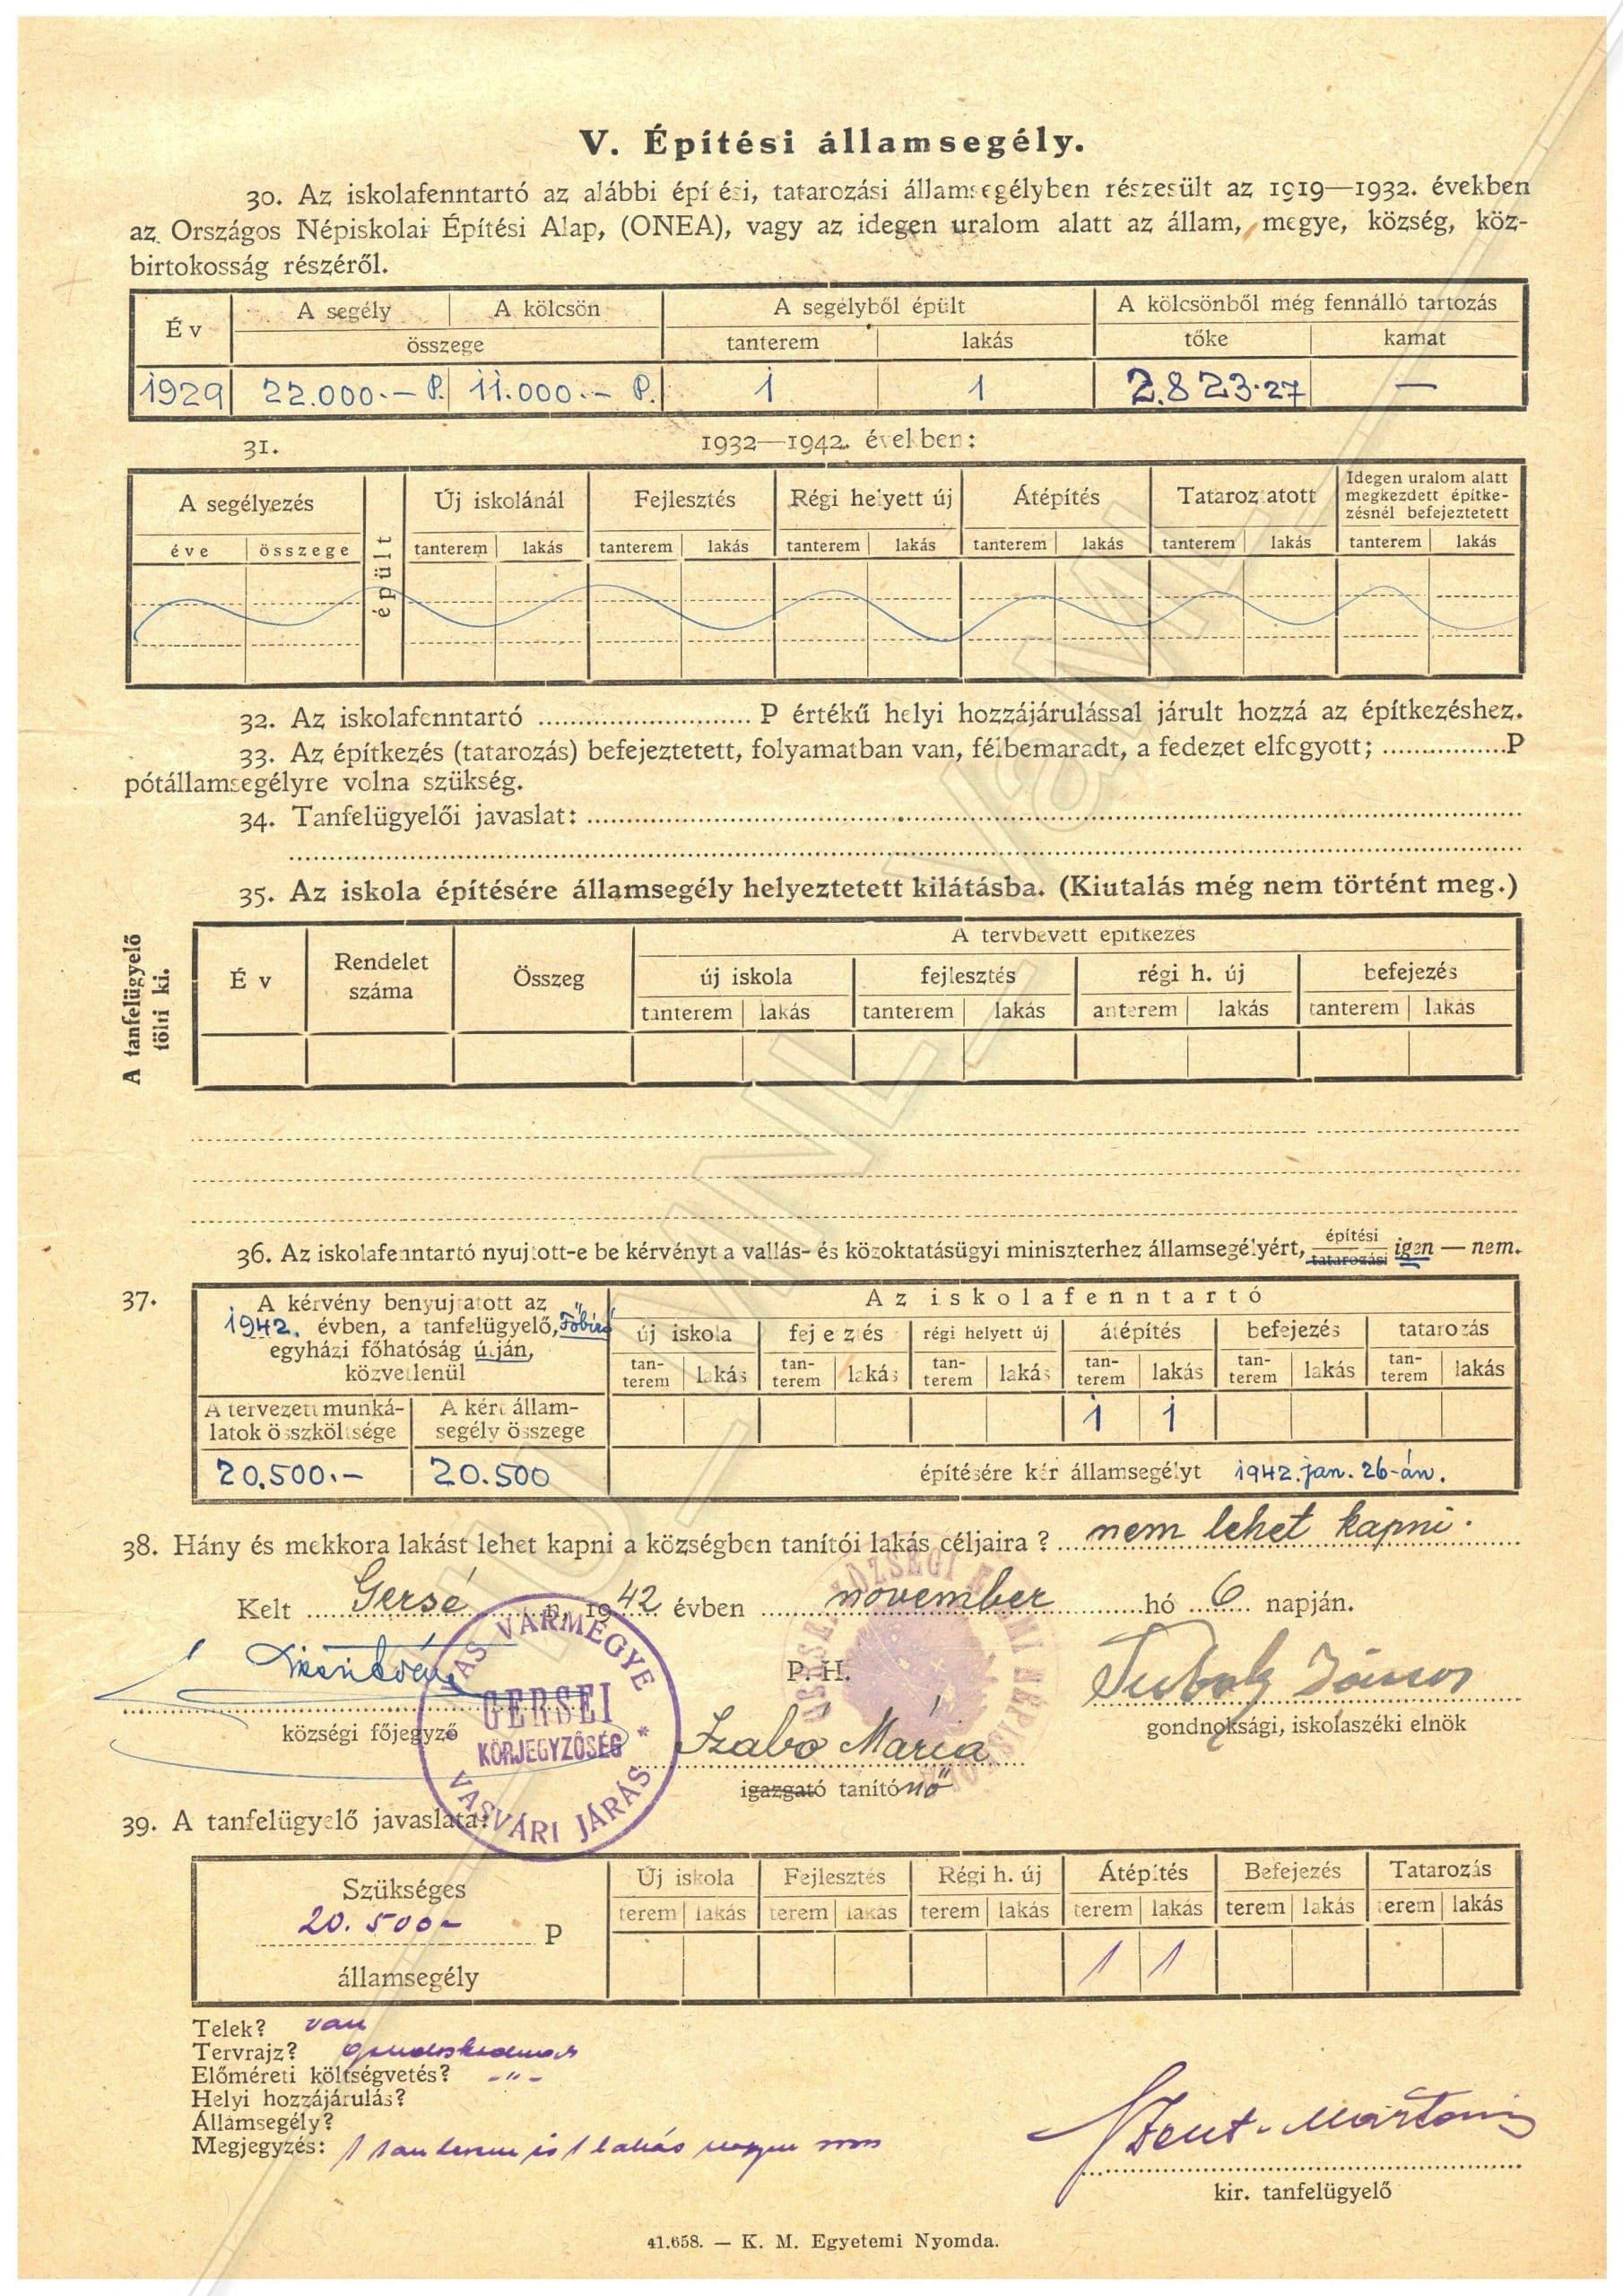 V. Építési államsegély.
30. Az iskolafenntartó az alábbi épí ési, tatarozási államsegélyben részesült az 1919—1932. években
az Országos Népiskolai Építési Alap, (ONEA), vagy az idegen uralom alatt az állam, megye, község, köz-
birtokosság részéről.
Év A segély A kölcsön A segélyből épült A kölcsönből még fennálló tartozás
összege tanterem lakás tőke kamat
1929 22.000.— P. 11.000.— P. 1 1 2.823.27 —
31. 1932—1942. években:
A segélyezés épült Új iskolánál Fejlesztés Régi helyett új Átépítés Tatarozatott Idegen uralom alatt
megkezdett építke-
zésnél befejeztetett
éve összege tanterem lakás tanterem lakás tanterem lakás tanterem lakás tanterem lakás tanterem lakás
32. Az iskolafenntartó ........ P értékű helyi hozzájárulással járult hozzá az építkezéshez.
33. Az építkezés (tatarozás) befejeztetett, folyamatban van, félbemaradt, a fedezet elfogyott; ........P
pótállamsegélyre volna szükség.
34. Tanfelügyelői javaslat:
35. Az iskola építésére államsegély helyeztetett kilátásba. (Kiutalás még nem történt meg.)
A tanfelügyelő
tölti ki.
Év Rendelet
száma Összeg A tervbevett építkezés
új iskola fejlesztés régi h. új befejezés
tanterem lakás tanterem lakás anterem lakás tanterem lakás
36. Az iskolafenntartó nyujtott-e be kérvényt a vallás- és közoktatásügyi miniszterhez államsegélyért, építési tatarozási igen — nem.
37. A kérvény benyujtatott az
1942. évben, a tanfelügyelő, Főbíró
egyházi főhatóság útján,
közvetlenül
Az iskolafenntartó
új iskola fej e zés régi helyett új átépítés befejezés tatarozás
tan-
terem lakás tan-
terem lakás tan-
terem lakás tan-
terem lakás tan-
terem lakás tan-
terem lakás
A tervezett munká-
latok összköltsége A kért állam-
segély összege 1 1
20.500.— 20.500 építésére kér államsegélyt 1942. jan. 26-án.
38. Hány és mekkora lakást lehet kapni a községben tanítói lakás céljaira? nem lehet kapni.
Kelt Gersé n, 1942 évben november hó 6 napján.
VAS VÁRMEGYE
GERSEI
KÖRJEGYZŐSÉG
VASVÁRI JÁRÁS
P. H.
községi főjegyző
Szabó Mária
igazgató tanítónő
János
gondnoksági, iskolaszéki elnök
39. A tanfelügyelő javaslata:
Szükséges
20.500— P
államsegély
Új iskola Fejlesztés Régi h. új Átépítés Befejezés Tatarozás
terem lakás terem lakás terem lakás terem lakás terem lakás terem lakás
1 1
Telek? van
Tervrajz?
Előméreti költségvetés? -"-
Helyi hozzájárulás?
Államsegély?
Megjegyzés: 1 tanterem és 1 lakás
Szent-Mártoni
kir. tanfelügyelő
41.658. — K. M. Egyetemi Nyomda.